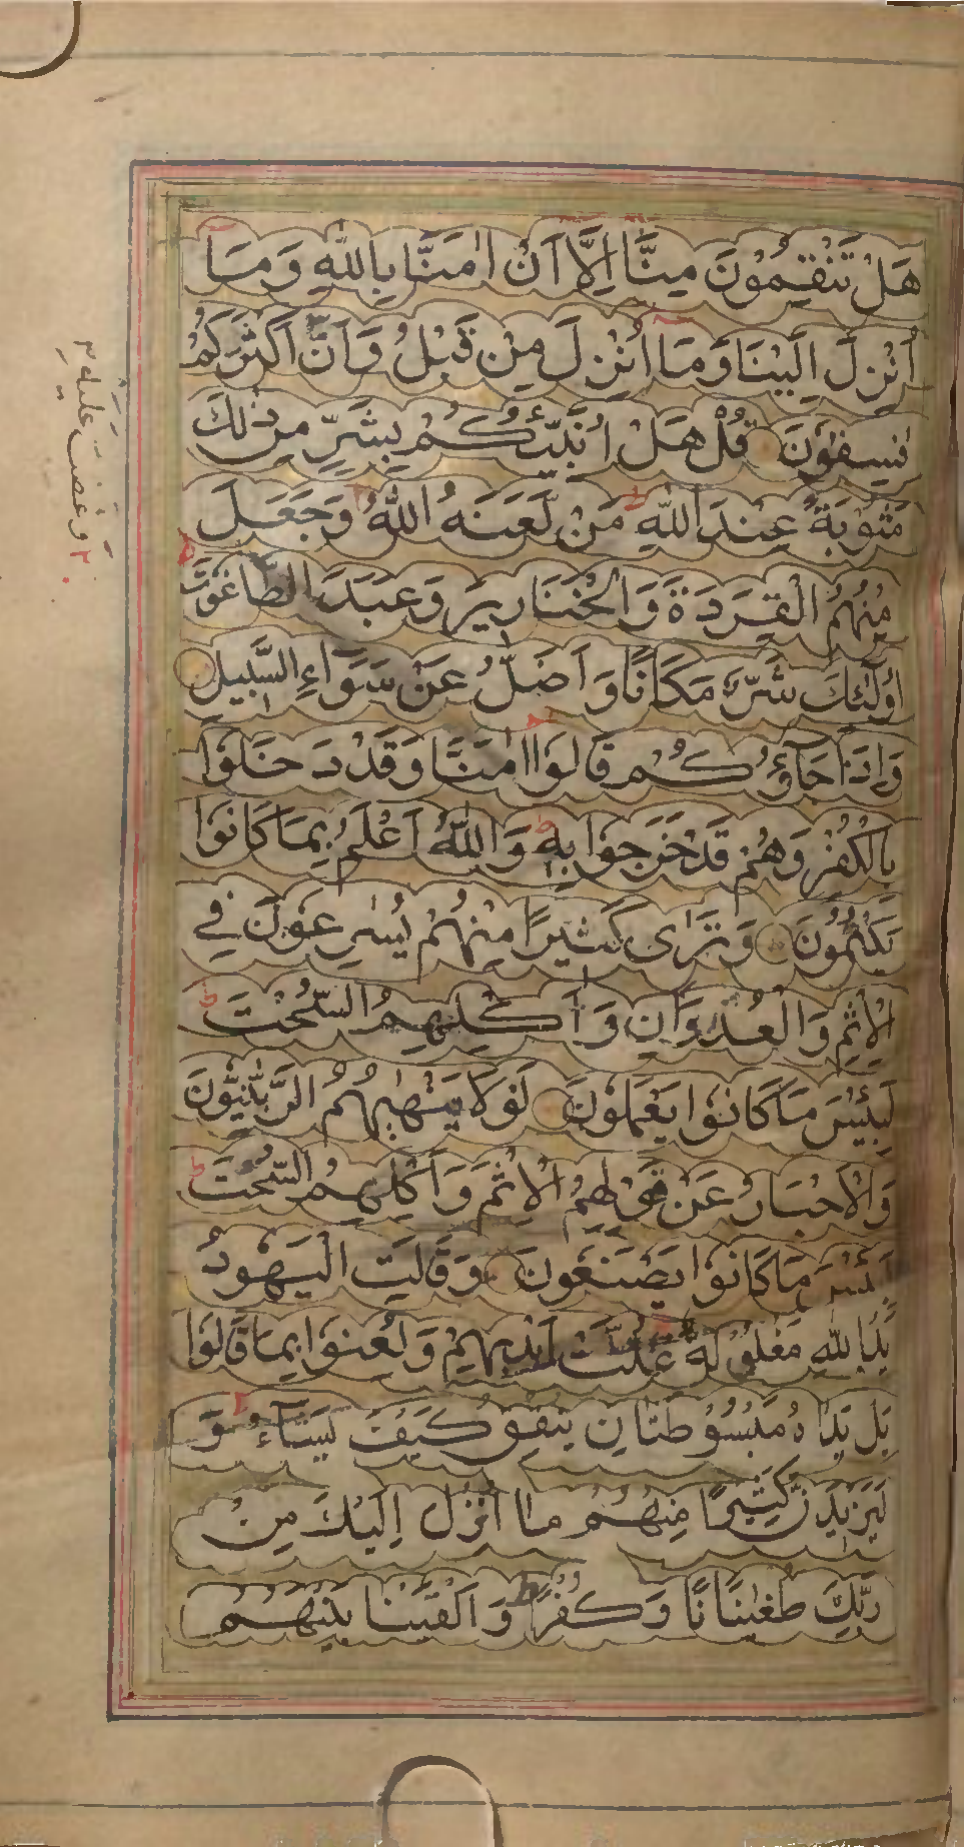 هَلْ تَنْقِمُوْنَ مِنَّا اِلَّا اَنْ اٰمَنَّا بِاللّٰهِ وَمَا
اُنْزِلَ اِلَيْنَا وَمَا اُنْزِلَ مِنْ قَبْلُ وَاَنَّ اَكْثَرَكُمْ
فٰسِقُوْنَ قُلْ هَلْ اُنَبِّئُكُمْ بِشَرٍّ مِنْ ذٰلِكَ
مَثُوْبَةً عِنْدَ اللّٰهِ مَنْ لَّعَنَهُ اللّٰهُ وَجَعَلَ
مِنْهُمُ الْقِرَدَةَ وَالْخَنَازِيْرَ وَعَبَدَ الطَّاغُوْتَ
اُولٰئِكَ شَرٌّ مَكَانًا وَاَضَلُّ عَنْ سَوَاءِ السَّبِيْلِ
وَاِذَا جَآؤُكُمْ قَالُوْا اٰمَنَّا وَقَدْ دَخَلُوْا
بِالْكُفْرِ وَهُمْ قَدْ خَرَجُوْا بِهٖ وَاللّٰهُ اَعْلَمُ بِمَا كَانُوْا
يَكْتُمُوْنَ وَتَرٰى كَثِيْرًا مِنْهُمْ يُسٰرِعُوْنَ فِي
الْاِثْمِ وَالْعُدْوَانِ وَاَكْلِهِمُ السُّحْتَ
لَبِئْسَ مَا كَانُوْا يَعْمَلُوْنَ لَوْلَا يَنْهٰهُمُ الرَّبّٰنِيُّوْنَ
وَالْاَحْبَارُ عَنْ قَوْلِهِمُ الْاِثْمَ وَاَكْلِهِمُ السُّحْتَ
لَبِئْسَ مَا كَانُوْا يَصْنَعُوْنَ وَقَالَتِ الْيَهُوْدُ
يَدُ اللّٰهِ مَغْلُوْلَةٌ غُلَّتْ اَيْدِيْهِمْ وَلُعِنُوْا بِمَا قَالُوْا
بَلْ يَدَاهُ مَبْسُوْطَتَانِ يُنْفِقُ كَيْفَ يَشَآءُ وَ
لَيَزِيْدَنَّ كَثِيْرًا مِنْهُمْ مَا اُنْزِلَ اِلَيْكَ مِنْ
رَبِّكَ طُغْيٰنًا وَكُفْرًا وَاَلْقَيْنَا بَيْنَهُمُ
وَغَضِبَ عَلَيْهِ